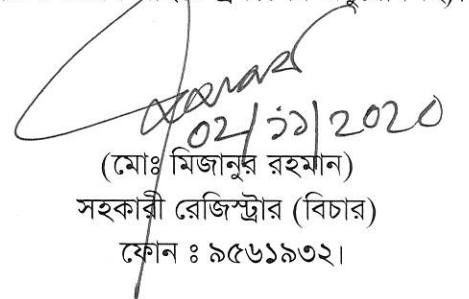 02/১১/2020
(মোঃ মিজানুর রহমান)
সহকারী রেজিস্ট্রার (বিচার)
ফোন ঃ ৯৫৬১৯৩২।